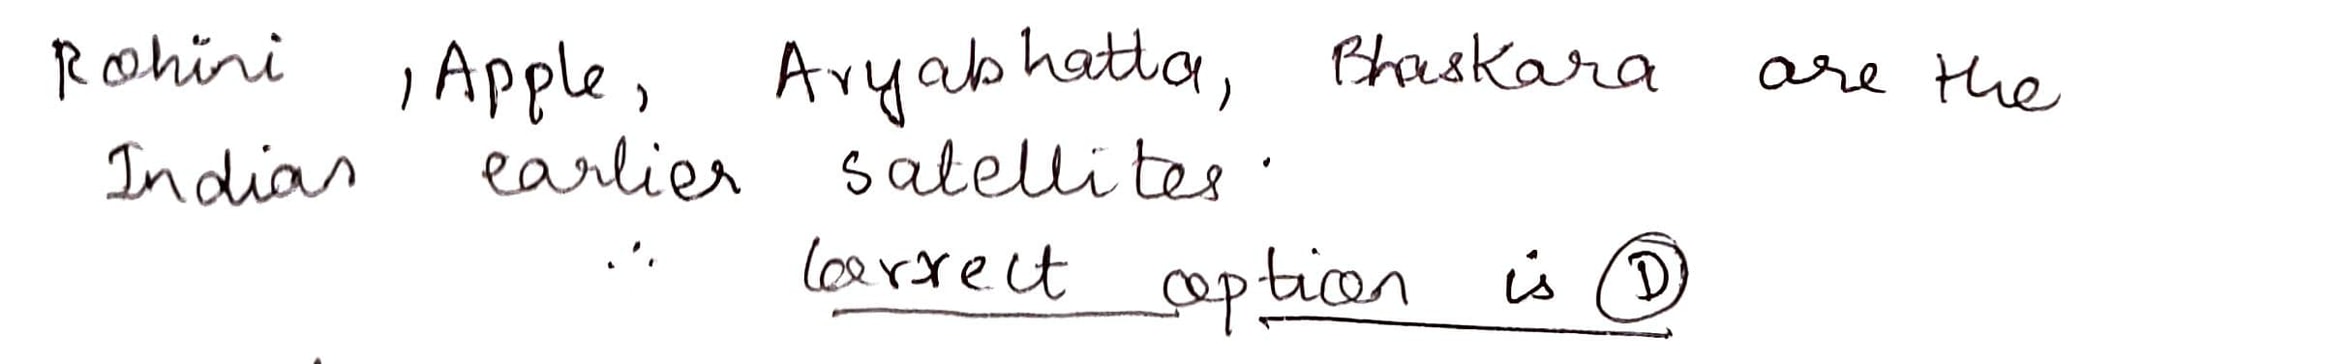 Rohini , Apple, Aryabhatta, Bhaskara are the
Indian earlier satellites.
∴ Correct option is D